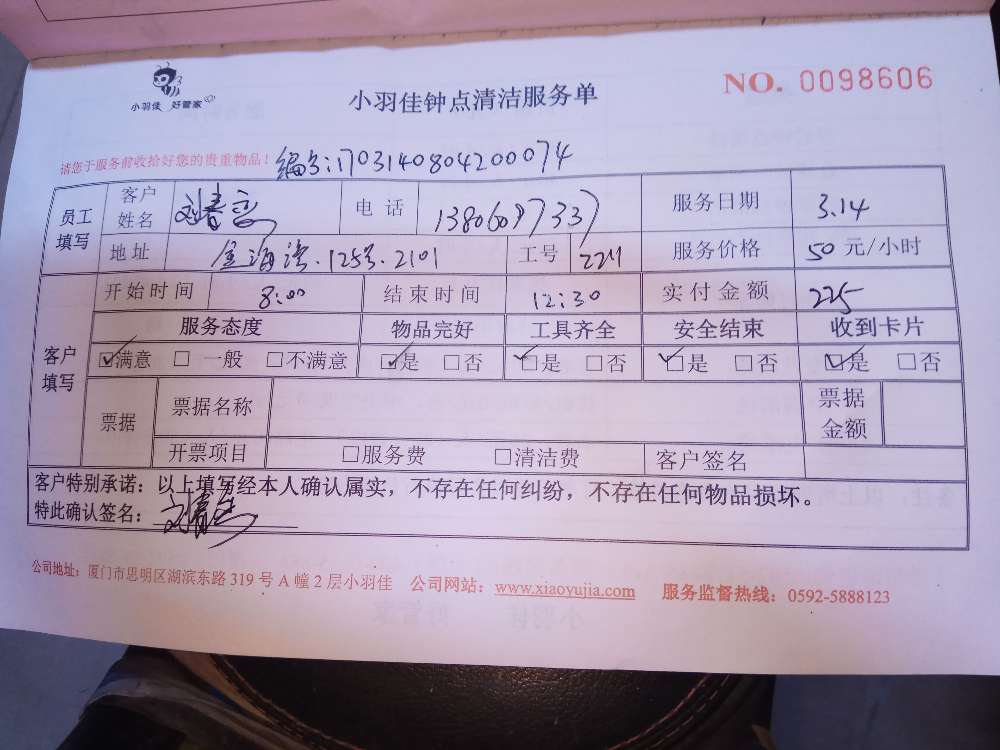 小羽佳 好管家
小羽佳钟点清洁服务单
NO. 0098606
请您于服务前收拾好您的贵重物品！
编号:1703140804200074
员工填写 客户姓名 刘春 电话 服务日期 3.14
地址 金海湾.125号.2101 工号 服务价格 50 元/小时
客户填写 开始时间 8:00 结束时间 12:30 实付金额 225
服务态度 物品完好 工具齐全 安全结束 收到卡片
☑满意 □一般 □不满意 ☑是 □否 ☑是 □否 ☑是 □否 ☑是 □否
票据 票据名称 票据金额
开票项目 □服务费 □清洁费 客户签名
客户特别承诺：以上填写经本人确认属实，不存在任何纠纷，不存在任何物品损坏。
特此确认签名： 刘春
公司地址：厦门市思明区湖滨东路 319 号 A 幢 2 层小羽佳 公司网站：www.xiaoyujia.com 服务监督热线：0592-5888123